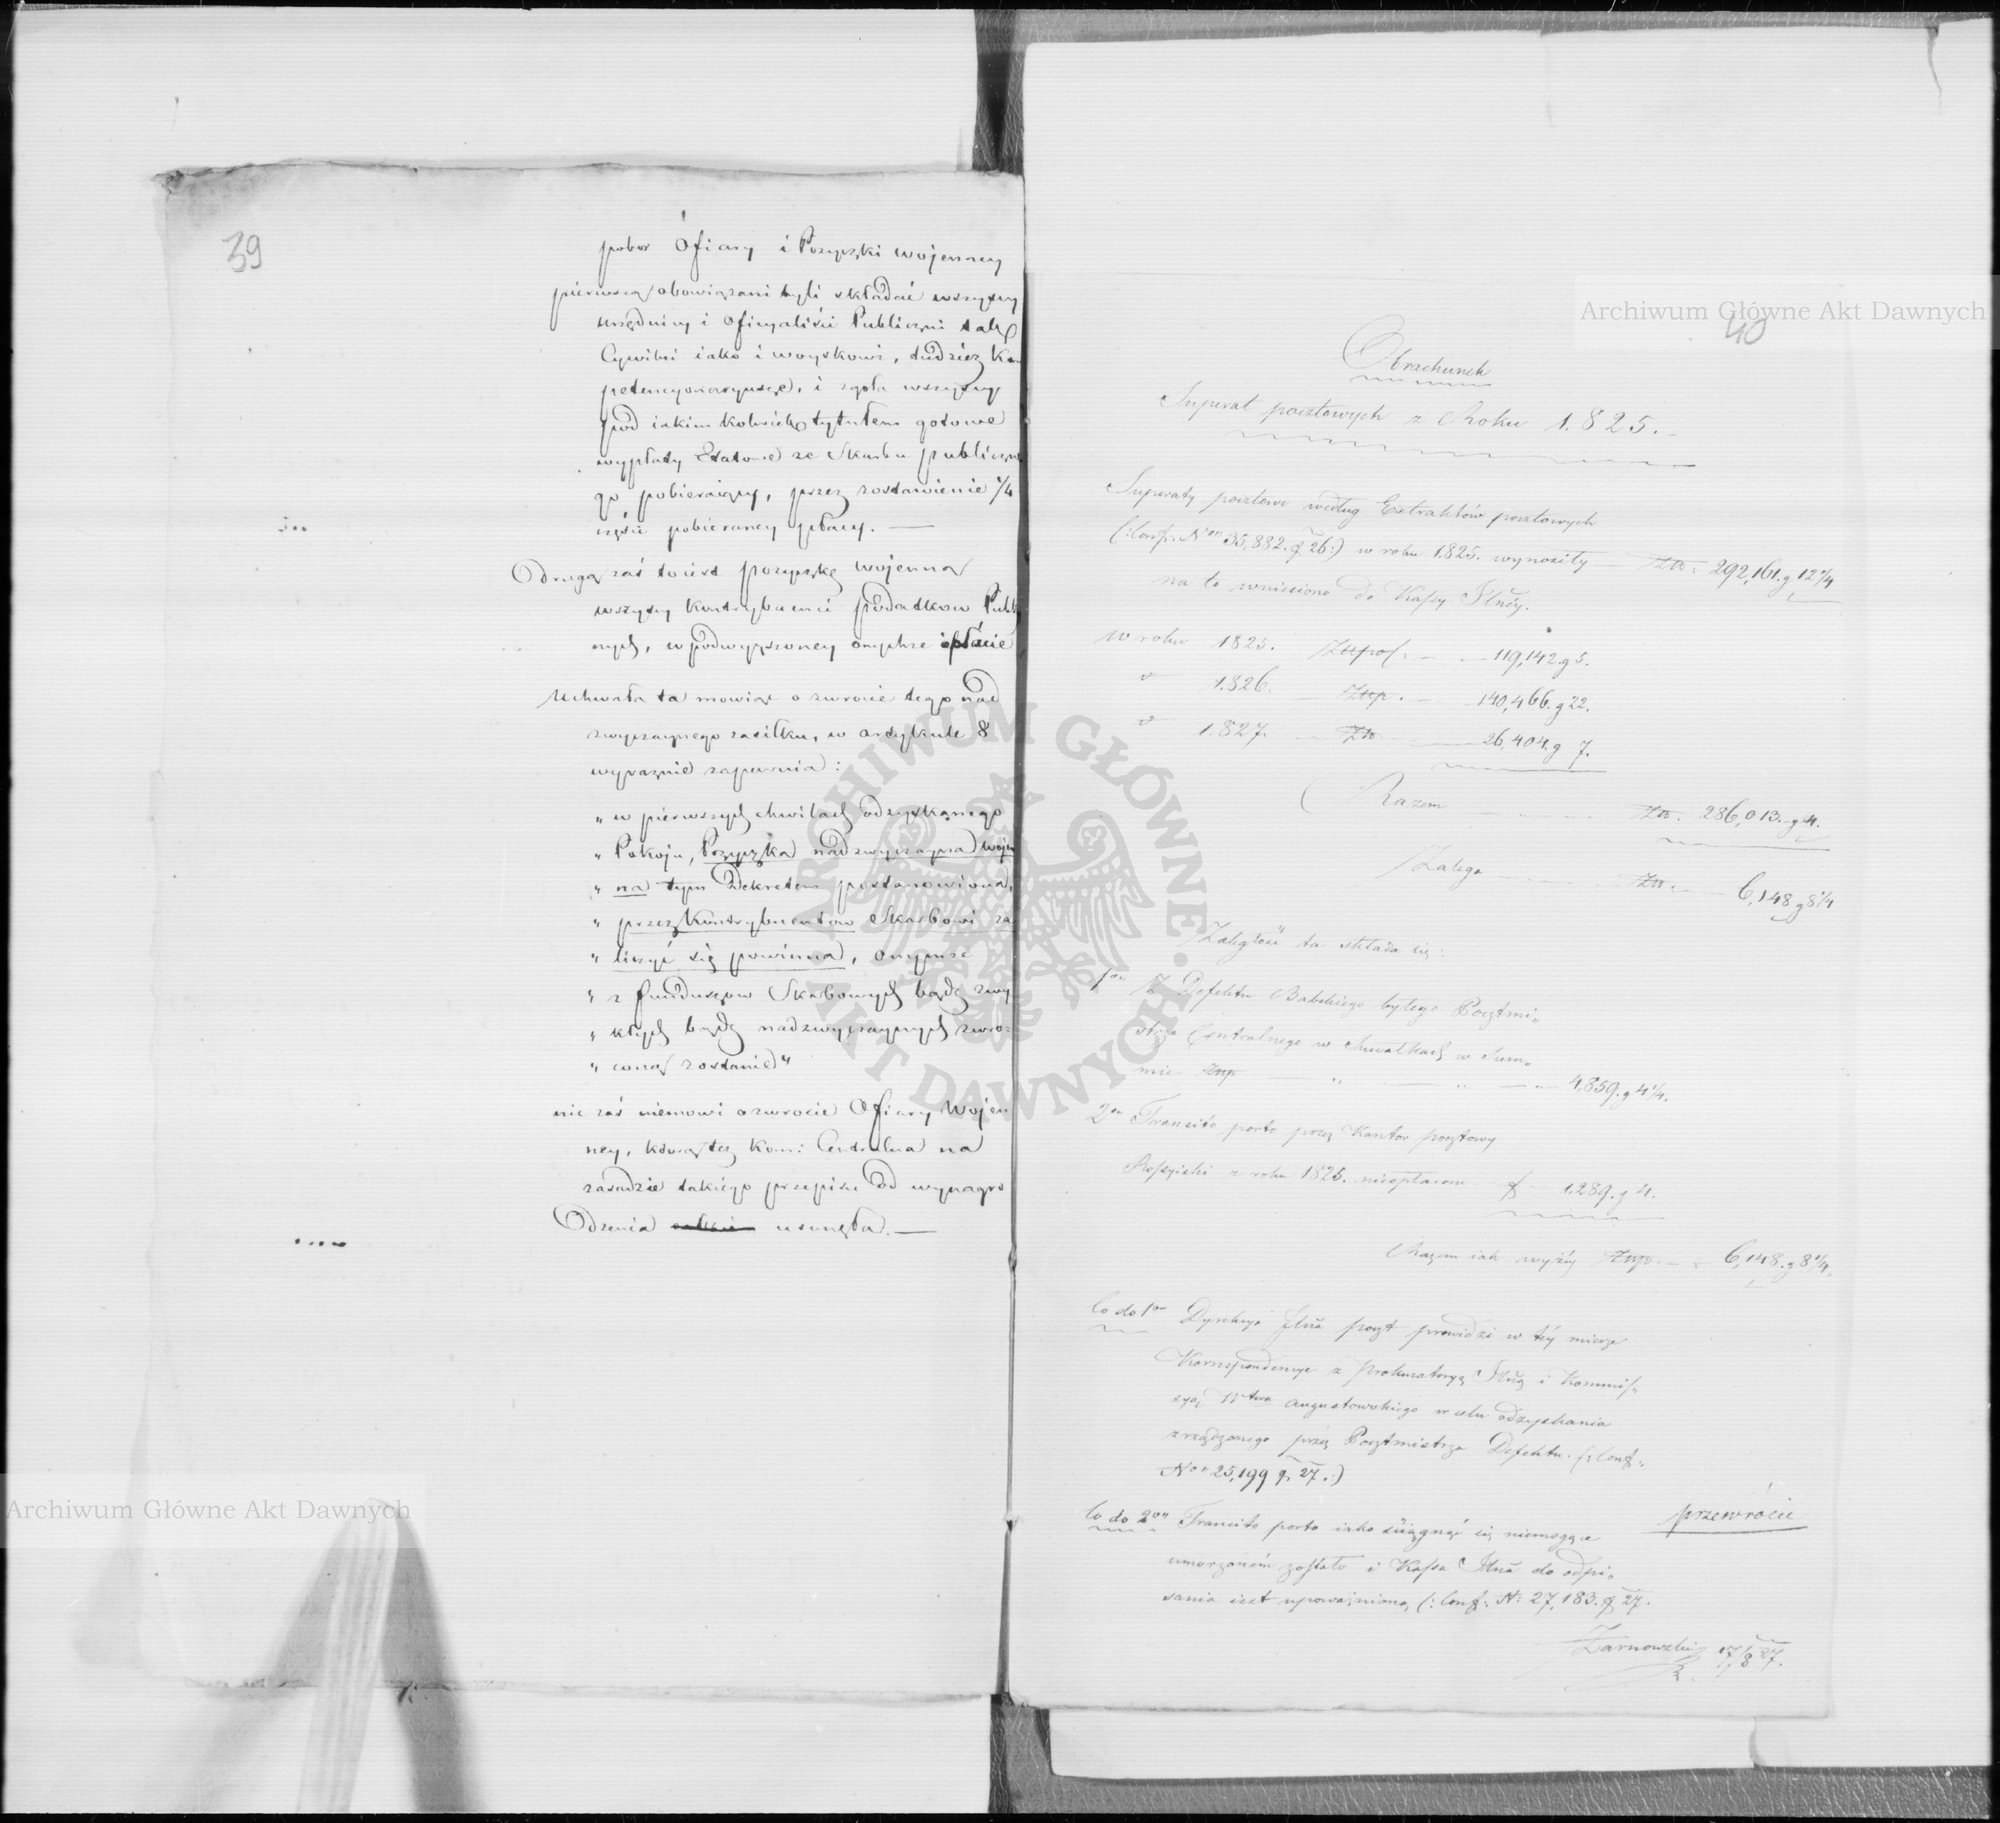 39
pobor Ofiary i Pożyczki wojenney
pierwszą obowiązani byli składać wszyscy
urzędnicy i Oficyaliści Publiczni tak
Cywilni iako i woyskowi, tudzież Kom
petencyonaryusze, i zgoła wszyscy
pod iakimkolwiek tytułem gotowe
wypłaty Etatowe ze Skarbu publiczne
go pobieraiący, przez zostawienie 1/4
części pobieraney płacy. —
Drugą zaś to iest pożyczkę wojenną
wszyscy Kontrybuenci podatkow Publi
cznych, w podwyższoney onychże opłacie
Uchwała ta mowiąc o zwrocie tego nad
zwyczaynego zasiłku, w artykule 8
wyraznie zapewnia:
„ w pierwszych chwilach odzyskanego
„ Pokoju, Pożyczka nadzwyczayna wojen
„ na tym Dekretem postanowiona,
„ przez Kontrybuentow Skarbowi za
„ liczyć się powinna, onymże
„ z funduszow Skarbowych bądź zwy
„ kłych bądź nadzwyczaynych zwro=
„ cona zostanie"
nic zaś niemowi o zwrocie Ofiary Wojen
ney, którą też Kom: Centralna na
zasadzie takiego przepisu od wynagro
dzenia usunęła. —
Archiwum Główne Akt Dawnych
40
Obrachunek
Superat pocztowych z Roku 1.825.
Superaty pocztowe według Extraktów pocztowych
(:Conf: N° 35,882. 26:) w roku 1.825. wynosiły — Zł: 292,161. g 12 1/4
na to wniesiono do Kassy Głney.
w roku 1825. Złpol: — 119,142. g 5.
" 1.826. — Złp. — 140,466. g 22.
" 1.827. — Zł — 26,404. g 7.
Razem — Zł. 286,013. g 4.
Zalega — Zł. — 6,148 g 8 1/4
Zaległość ta składa się:
1° Z Defektu Babskiego byłego Pocztmi=
strza Centralnego w Suwałkach w Sum=
mie Złp — " — " — 4,859. g 4 1/4.
2° Transito porto przez Kantor pocztowy
Rossyiski z roku 1825. nieopłacone 1,289. g 4.
Razem iak wyżey Złp. — 6,148. g 8 1/4.
Co do 1° Dyrekcya Głna poczt prowadzi w tey mierze
Korrespondencye z Prokuratoryą Głną i Kommis=
syą Wtwa Augustowskiego w celu odzyskania
zrządzonego przez Pocztmistrza Defektu. (:Conf:
N° 25,199 27.:)
Co do 2° Transito porto iako ściągnąć się niemogące
umorzoném zostało i Kassa Głna do odpi=
sania iest upoważnioną (:Conf: N: 27,183. 27.
przewrócić
Żarnowski 17/8 27.
Archiwum Główne Akt Dawnych
ARCHIWUM GŁÓWNE
AKT DAWNYCH